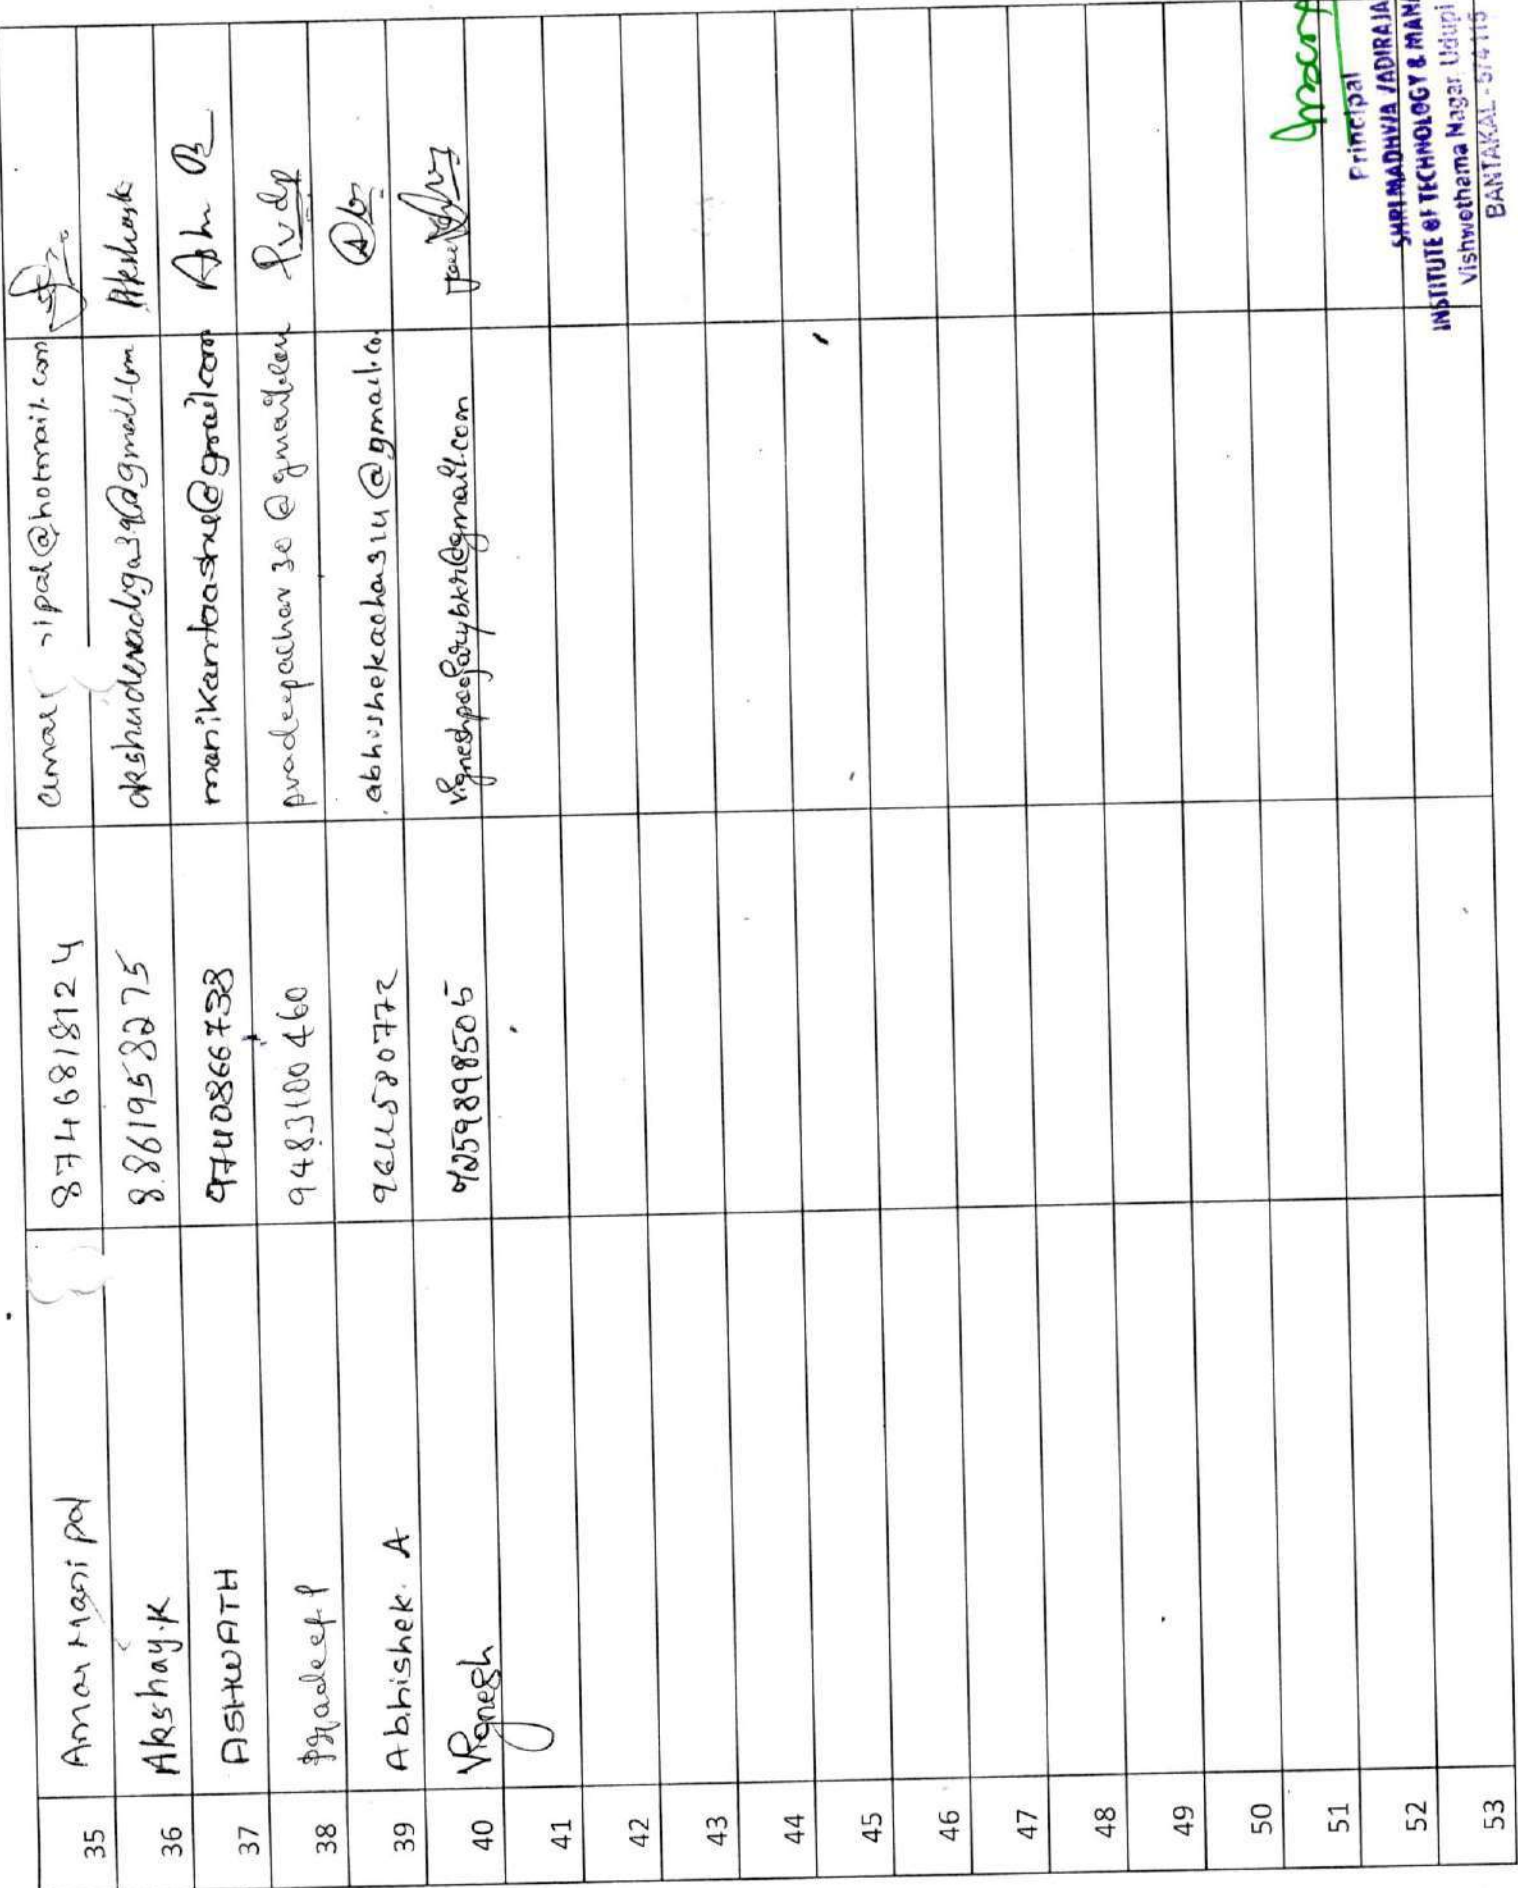 35 Amar Manipal 8746818124 amar ipal@hotmail.com
36 Akshay.K 8861958275 Akshay
37 ASHWATH 9740866738 manikantaashu@gmail.com
38 Pradeep P 9483100460 pradeepachar30@gmail.com Pvdp
39 Abhishek. A 9611580772 abhishekachar314@gmail.co.
40 Vignesh 7259898505
41
42
43
44
45
46
47
48
49
50
51
52
53
Principal
SHRI MADHWA VADIRAJA
INSTITUTE OF TECHNOLOGY & MAN
Vishwothama Nagar, Udupi
BANTAKAL - 574115